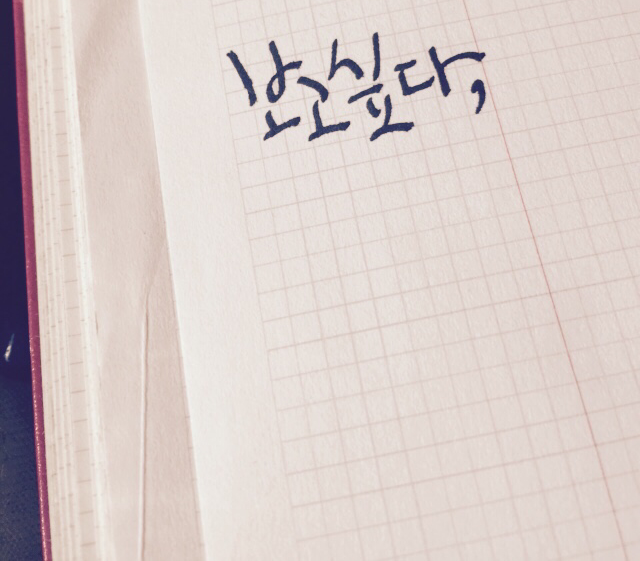 보고싶다,